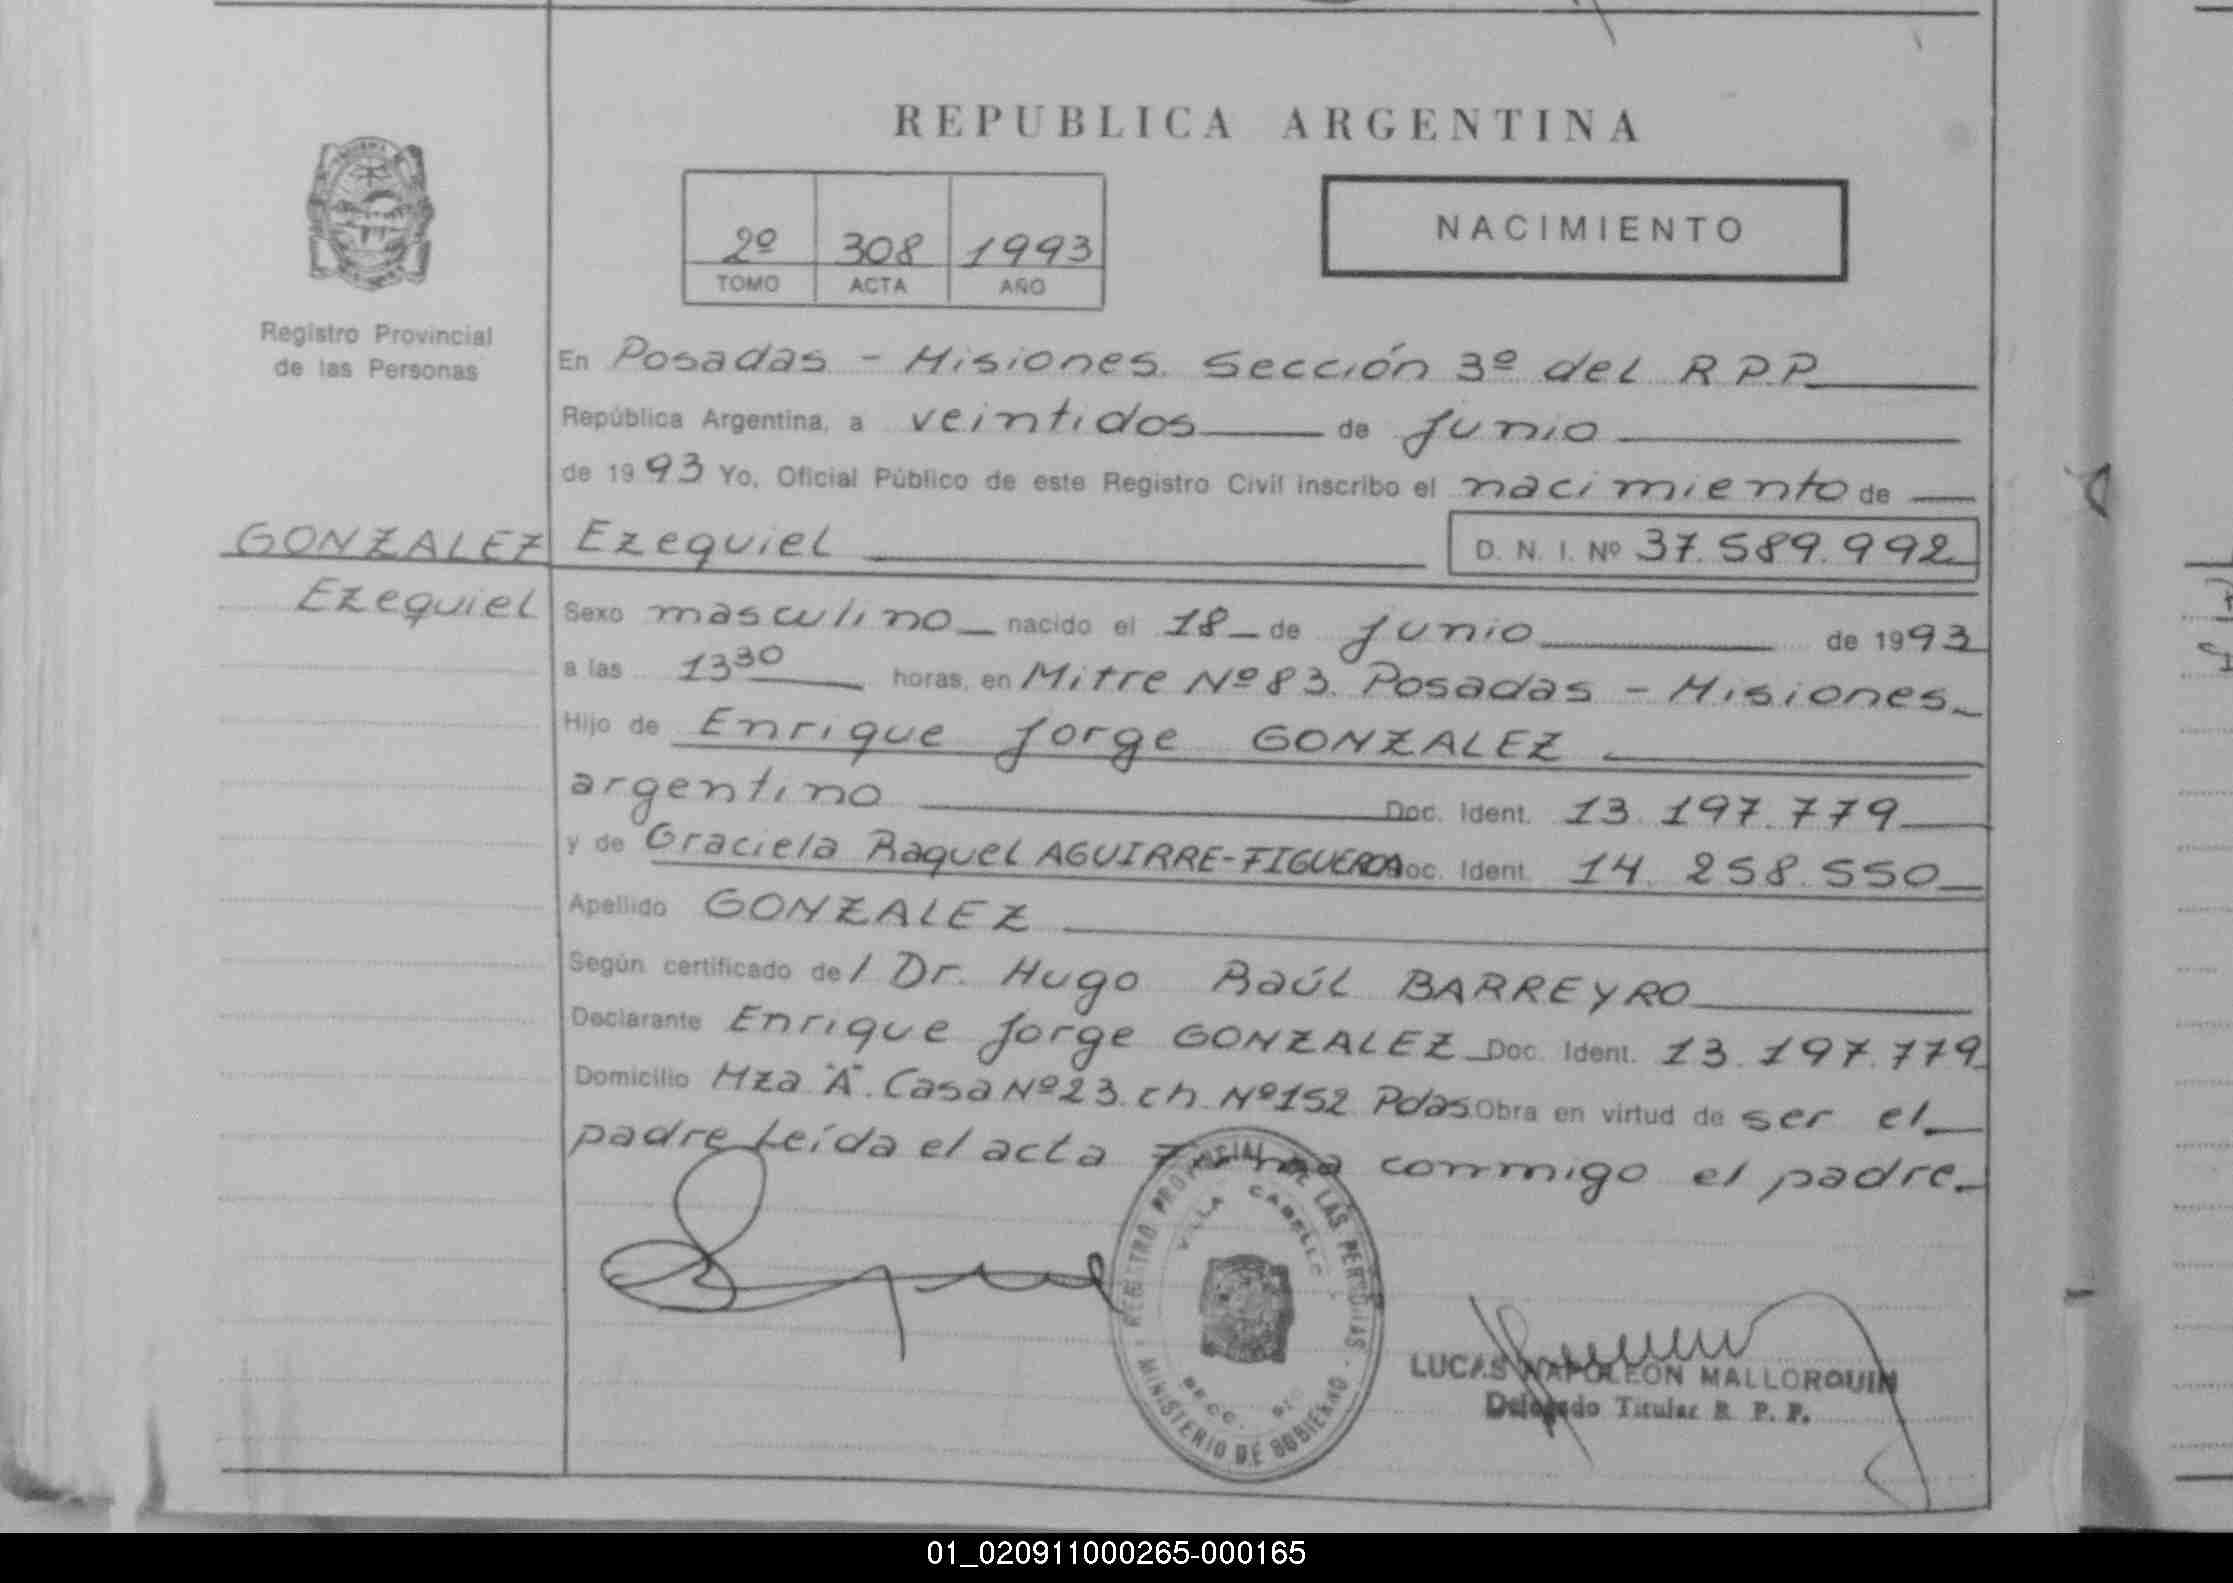 REPUBLICA ARGENTINA
2º 308 1993
TOMO ACTA AÑO
NACIMIENTO
Registro Provincial
de las Personas
En Posadas - Misiones. Sección 3º del R.P.P.
República Argentina, a veintidos de junio
de 1993 Yo, Oficial Público de este Registro Civil inscribo el nacimiento de
GONZALEZ
Ezequiel
Ezequiel D. N. I. Nº 37.589.992
Sexo masculino nacido el 18 de junio de 1993
a las 13 30 horas, en Mitre Nº 83. Posadas - Misiones
Hijo de Enrique Jorge GONZALEZ
argentino Doc. Ident. 13.197.779
y de Graciela Raquel AGUIRRE-FIGUEROA Doc. Ident. 14.258.550
Apellido GONZALEZ
Según certificado del Dr. Hugo Raúl BARREYRO
Declarante Enrique Jorge GONZALEZ Doc. Ident. 13.197.779
Domicilio Mza "A". Casa Nº 23. ch. Nº 152 Pdas. Obra en virtud de ser el
padre Leída el acta Firma conmigo el padre.
REGISTRO PROVINCIAL DE LAS PERSONAS
VILLA CABELLO
SECC.
MINISTERIO DE GOBIERNO
LUCAS NAPOLEON MALLORQUIN
Delegado Titular R. P. P.
01_020911000265-000165